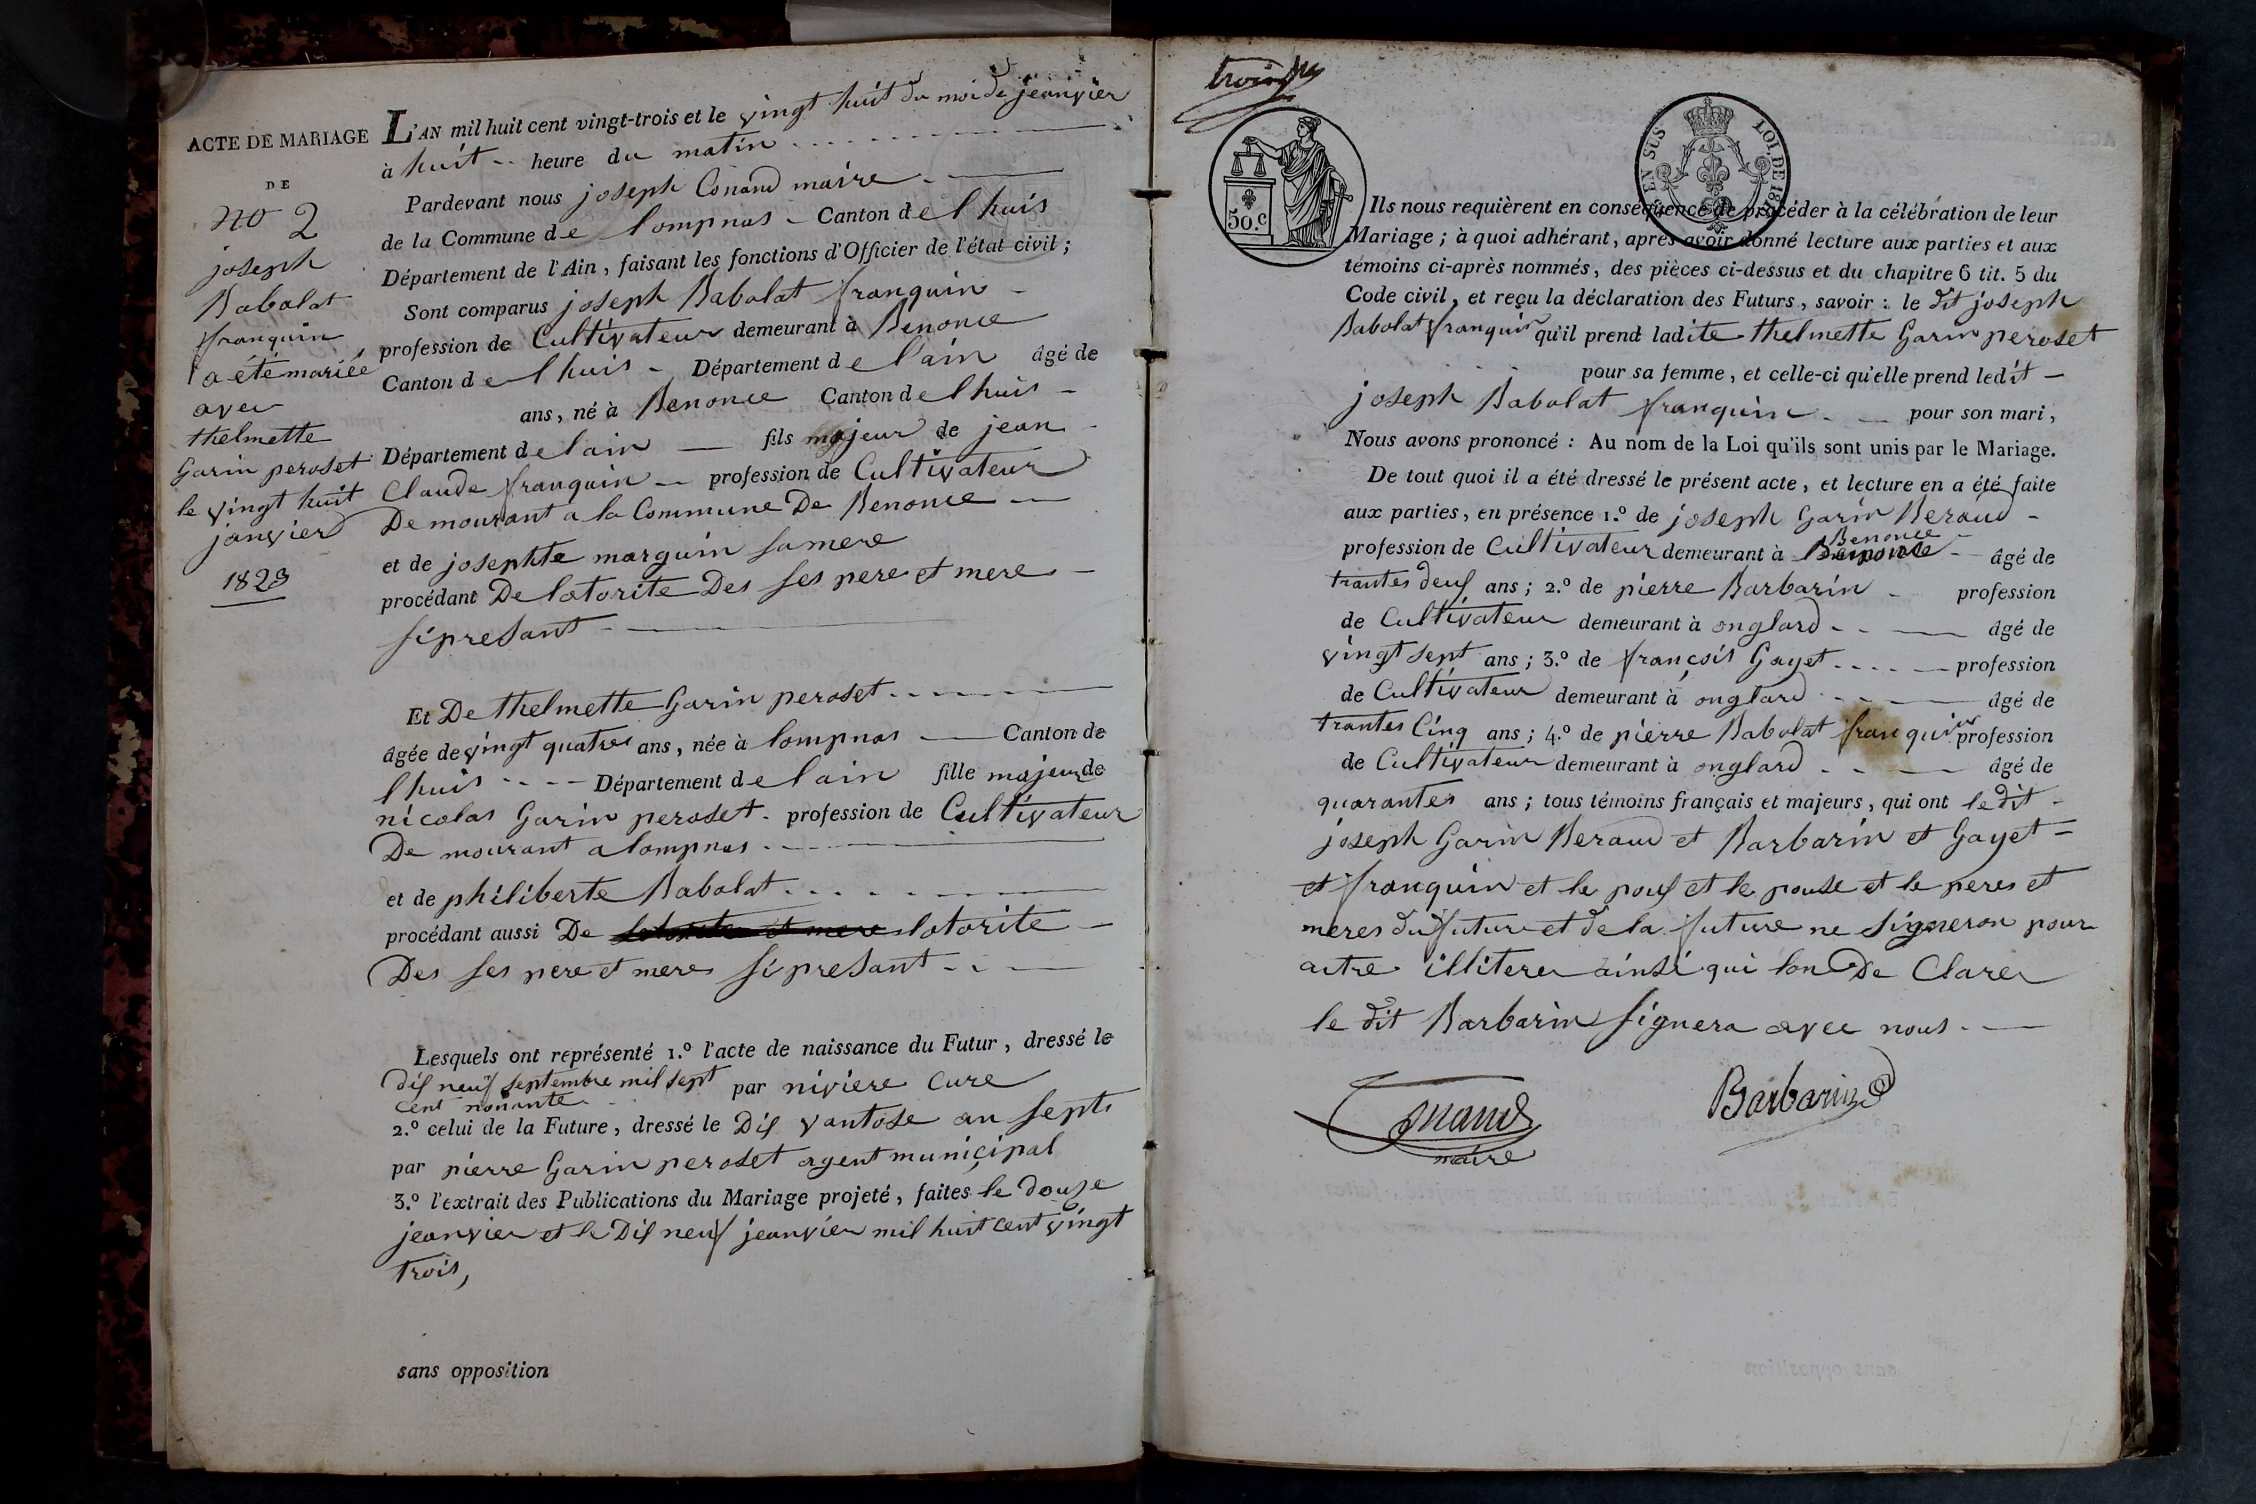 ACTE DE MARIAGE
DE
No 2
joseph
Babolat
franquin
a été mariée
avec
thelmette
Garin peroset
le vingt huit
janvier
1823
L'AN mil huit cent vingt-trois et le vingt huit du moi de jeanvier
à huit heure du matin
Pardevant nous joseph Conand maire
de la Commune de lompnas Canton de lhuis
Département de l'Ain, faisant les fonctions d'Officier de l'état civil;
Sont comparus joseph Babolat franquin
profession de Cultivateur demeurant à Benonce
Canton de lhuis Département de lain âgé de
ans, né à Benonce Canton de lhuis
Département de lain fils majeur de jean
Claude franquin profession de Cultivateur
De mourant a la Commune De Benonce
et de josephte marguin sa mere
procédant De latorite Des ses pere et mere
si presant
Et De thelmette Garin peroset
âgée de vingt quatres ans, née à lompnas Canton de
lhuis Département de lain fille majeur de
nicolas Garin peroset profession de Cultivateur
De mourant a lompnas
et de philiberte Babolat
procédant aussi De et mere latorite
Des ses pere et meres si presant
Lesquels ont représenté 1.º l'acte de naissance du Futur, dressé le
dis neuf septembre mil sept
cent nonante par niviere cure
2.º celui de la Future, dressé le Dis vantose an sept
par pierre Garin peroset agent municipal
3.º l'extrait des Publications du Mariage projeté, faites le douze
jeanvier et le Dis neuf jeanvier mil huit cent vingt
trois,
sans opposition
50.C
EN SUS LOI DE
Ils nous requièrent en conséquence de procéder à la célébration de leur
Mariage; à quoi adhérant, après avoir donné lecture aux parties et aux
témoins ci-après nommés, des pièces ci-dessus et du chapitre 6 tit. 5 du
Code civil, et reçu la déclaration des Futurs, savoir: le dit joseph
Babolat franquin qu'il prend ladite thelmette Garin peroset
pour sa femme, et celle-ci qu'elle prend ledit
joseph Babolat franquin pour son mari,
Nous avons prononcé: Au nom de la Loi qu'ils sont unis par le Mariage.
De tout quoi il a été dressé le présent acte, et lecture en a été faite
aux parties, en présence 1.º de joseph Garin Beraud
Benonce
profession de Cultivateur demeurant à âgé de
trantes deus ans; 2.º de pierre Barbarin profession
de Cultivateur demeurant à onglard âgé de
vingt sept ans; 3.º de françois Gayet profession
de Cultivateur demeurant à onglard âgé de
trantes Cinq ans; 4.º de pierre Babolat franquin profession
de Cultivateur demeurant à onglard âgé de
quarantes ans; tous témoins français et majeurs, qui ont le dit
joseph Garin Beraud et Barbarin et Gayet
et franquin et le pous et le pouse et le peres et
meres du future et de la future ne signeron pour
aitre illitere ainsi qui lon De Clarer
le dit Barbarin signera avec nous
Conand
maire
Barbarin